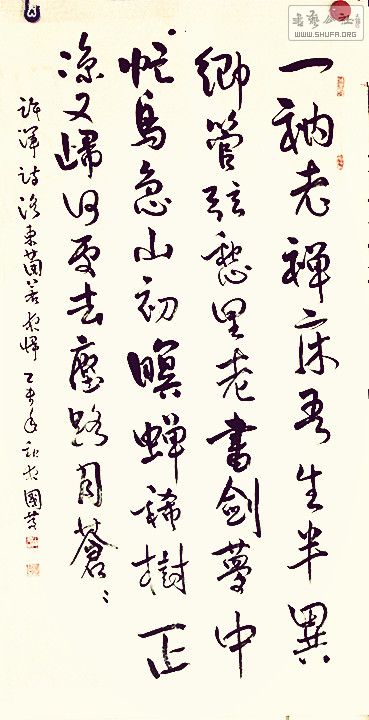 一衲老禪床吾生半異
鄉管弦愁里老書劍夢中
忙鳥急山初暝蟬稀樹正
涼又歸何處去塵路月蒼〻
許渾詩洛東蘭若夜歸 乙未年 國慶
WWW.SHUFA.ORG